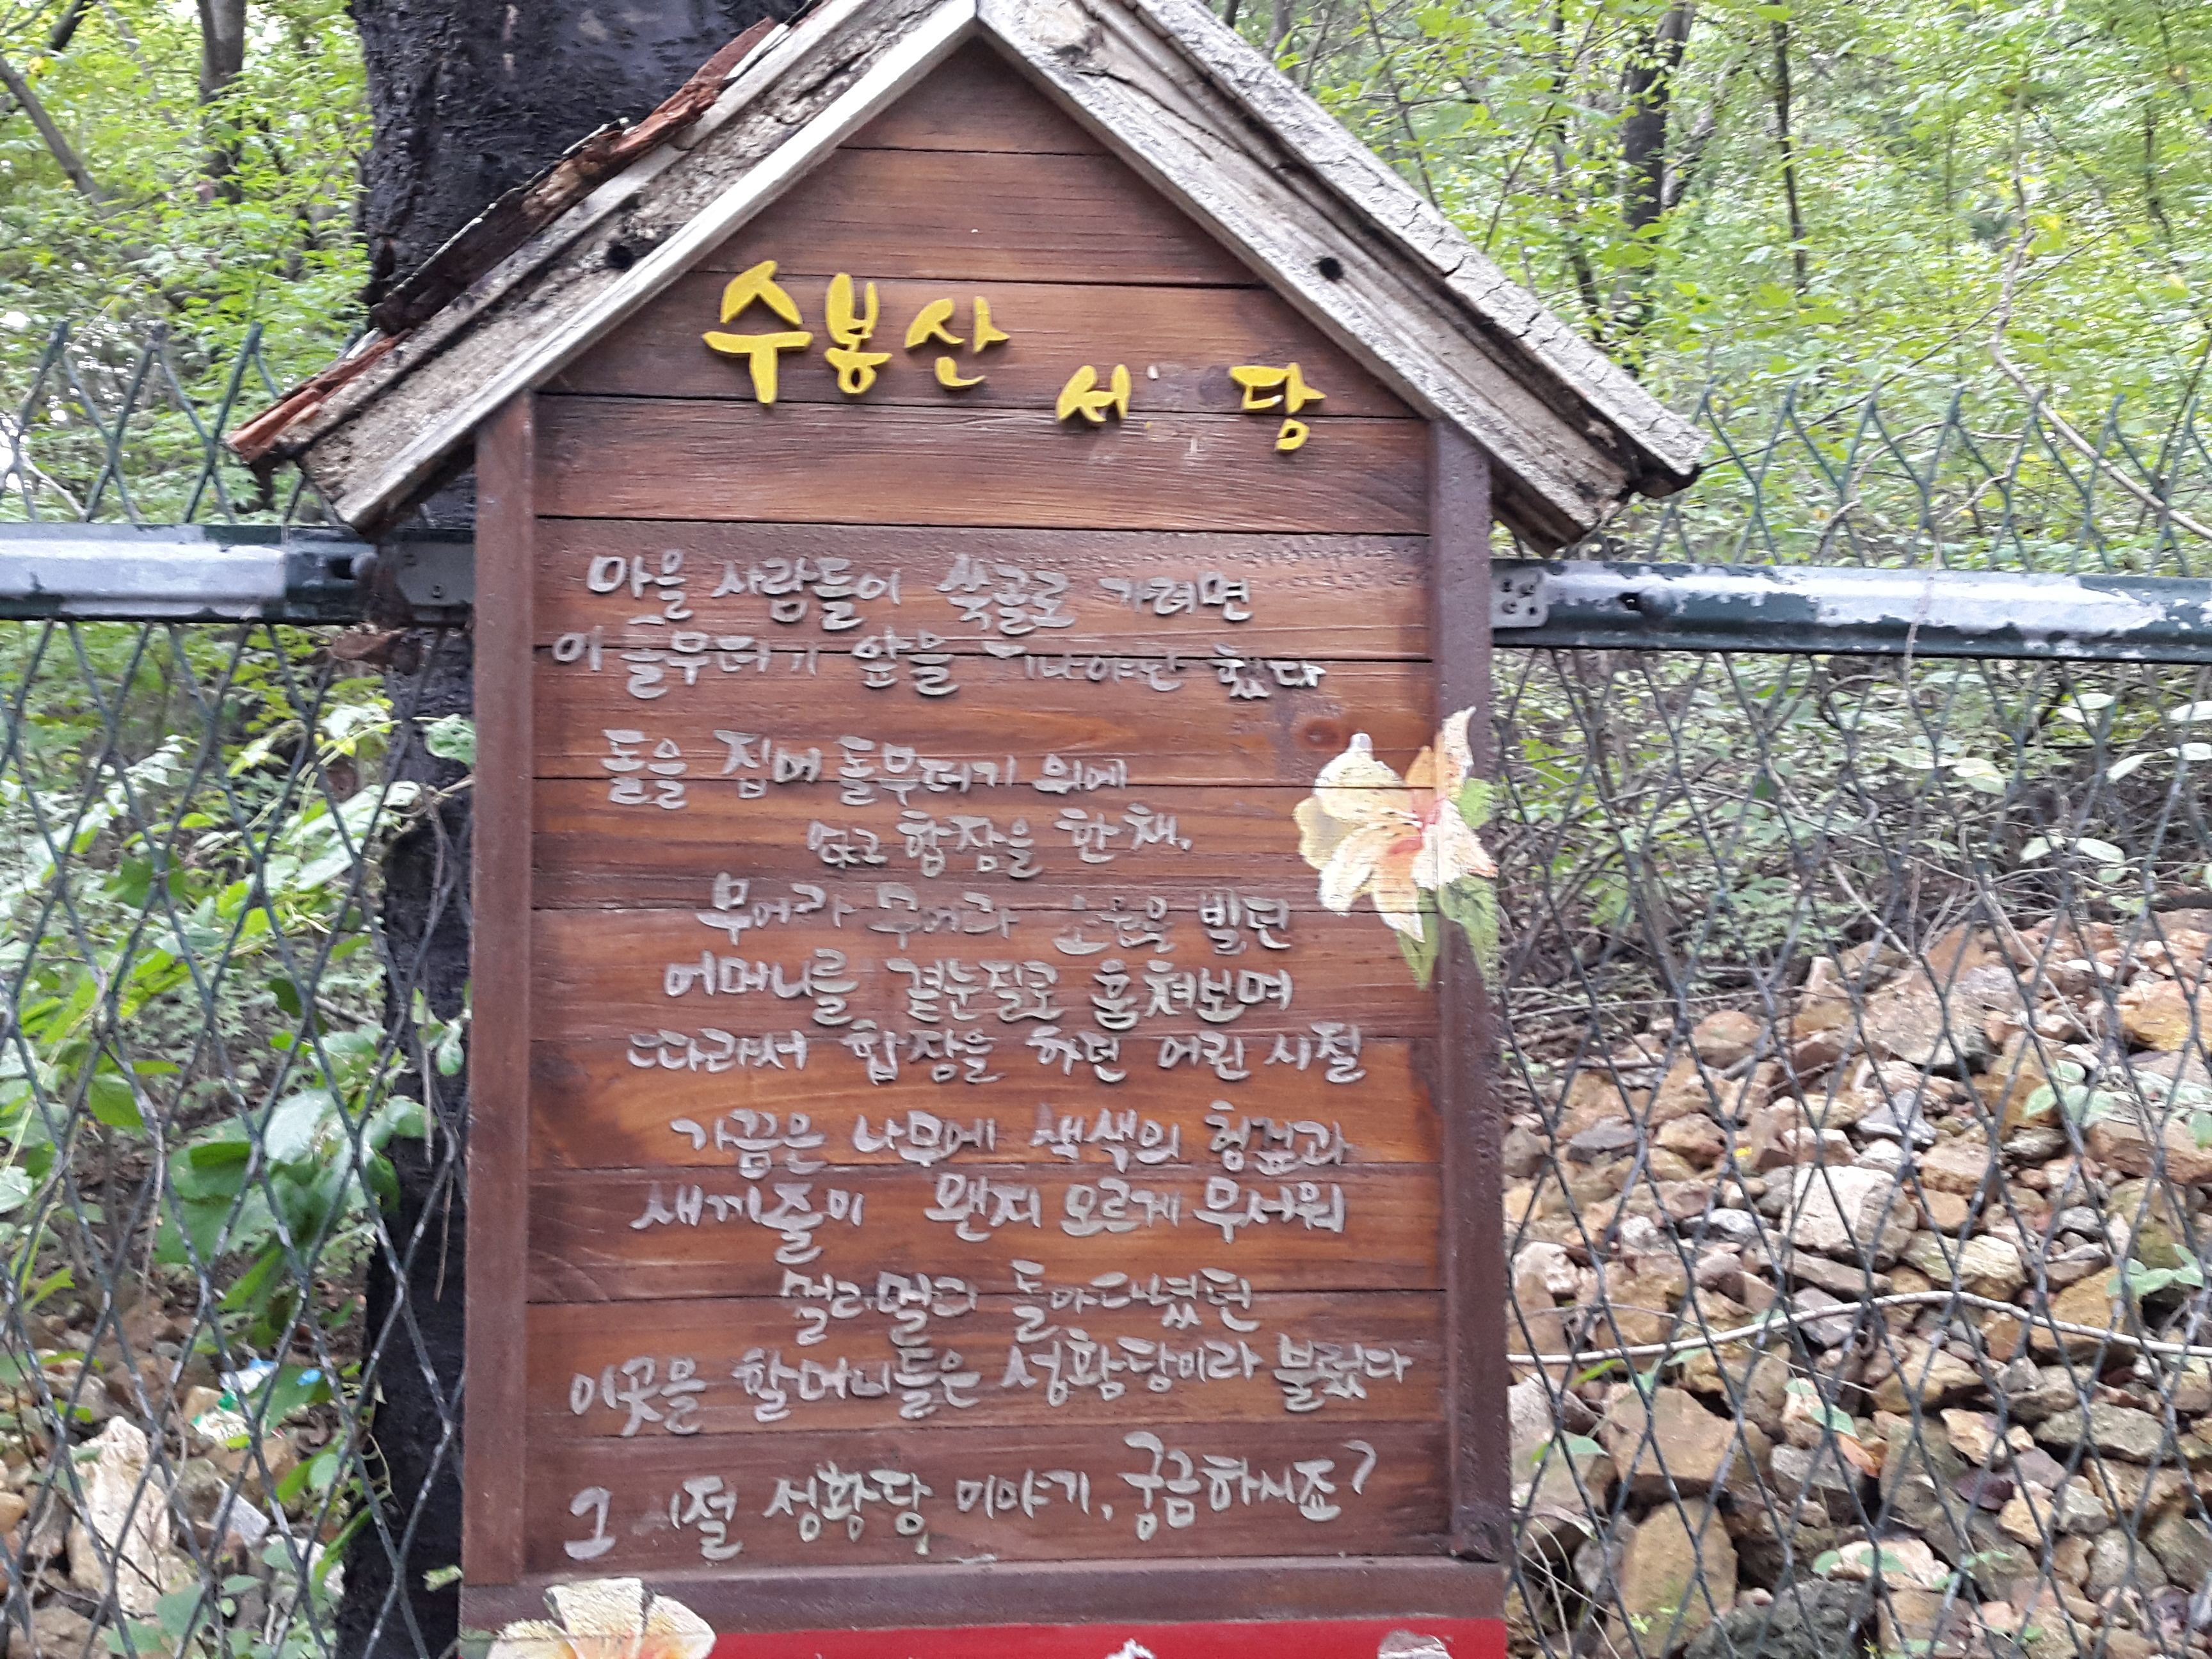 수봉산 서 당
마을 사람들이 쑥골로 가려면
이 돌무더기 앞을 지나야만 했다
돌을 집어 돌무더기 위에
얹고 합장을 한 채,
무어라 무어라 소원을 빌던
어머니를 곁눈질로 훔쳐보며
따라서 합장을 하던 어린 시절
가끔은 나무에 색색의 헝겊과
새끼줄이 왠지 모르게 무서워
멀리멀리 돌아다녔던
이곳을 할머니들은 성황당이라 불렀다
그 시절 성황당 이야기, 궁금하시죠?